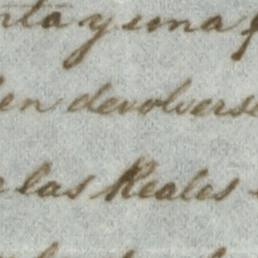 nta y una
en devolverse
e las Reales